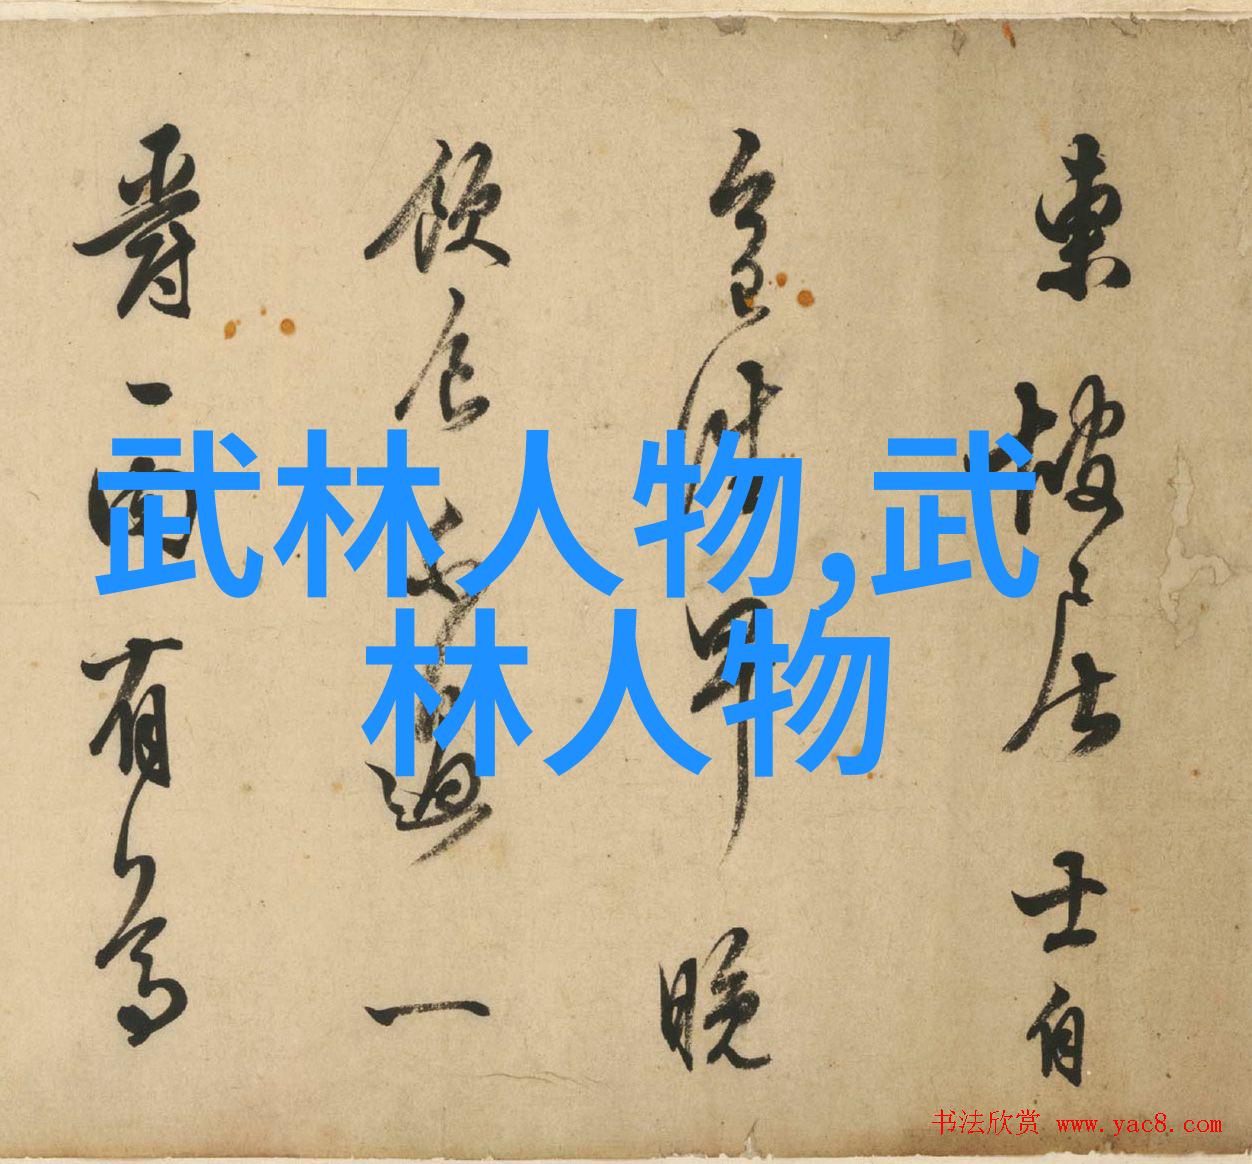 武林人物,武
林人物
東坡居士自
早晚
飲食不過一
爵一肉有
书法欣赏 www.yac8.com